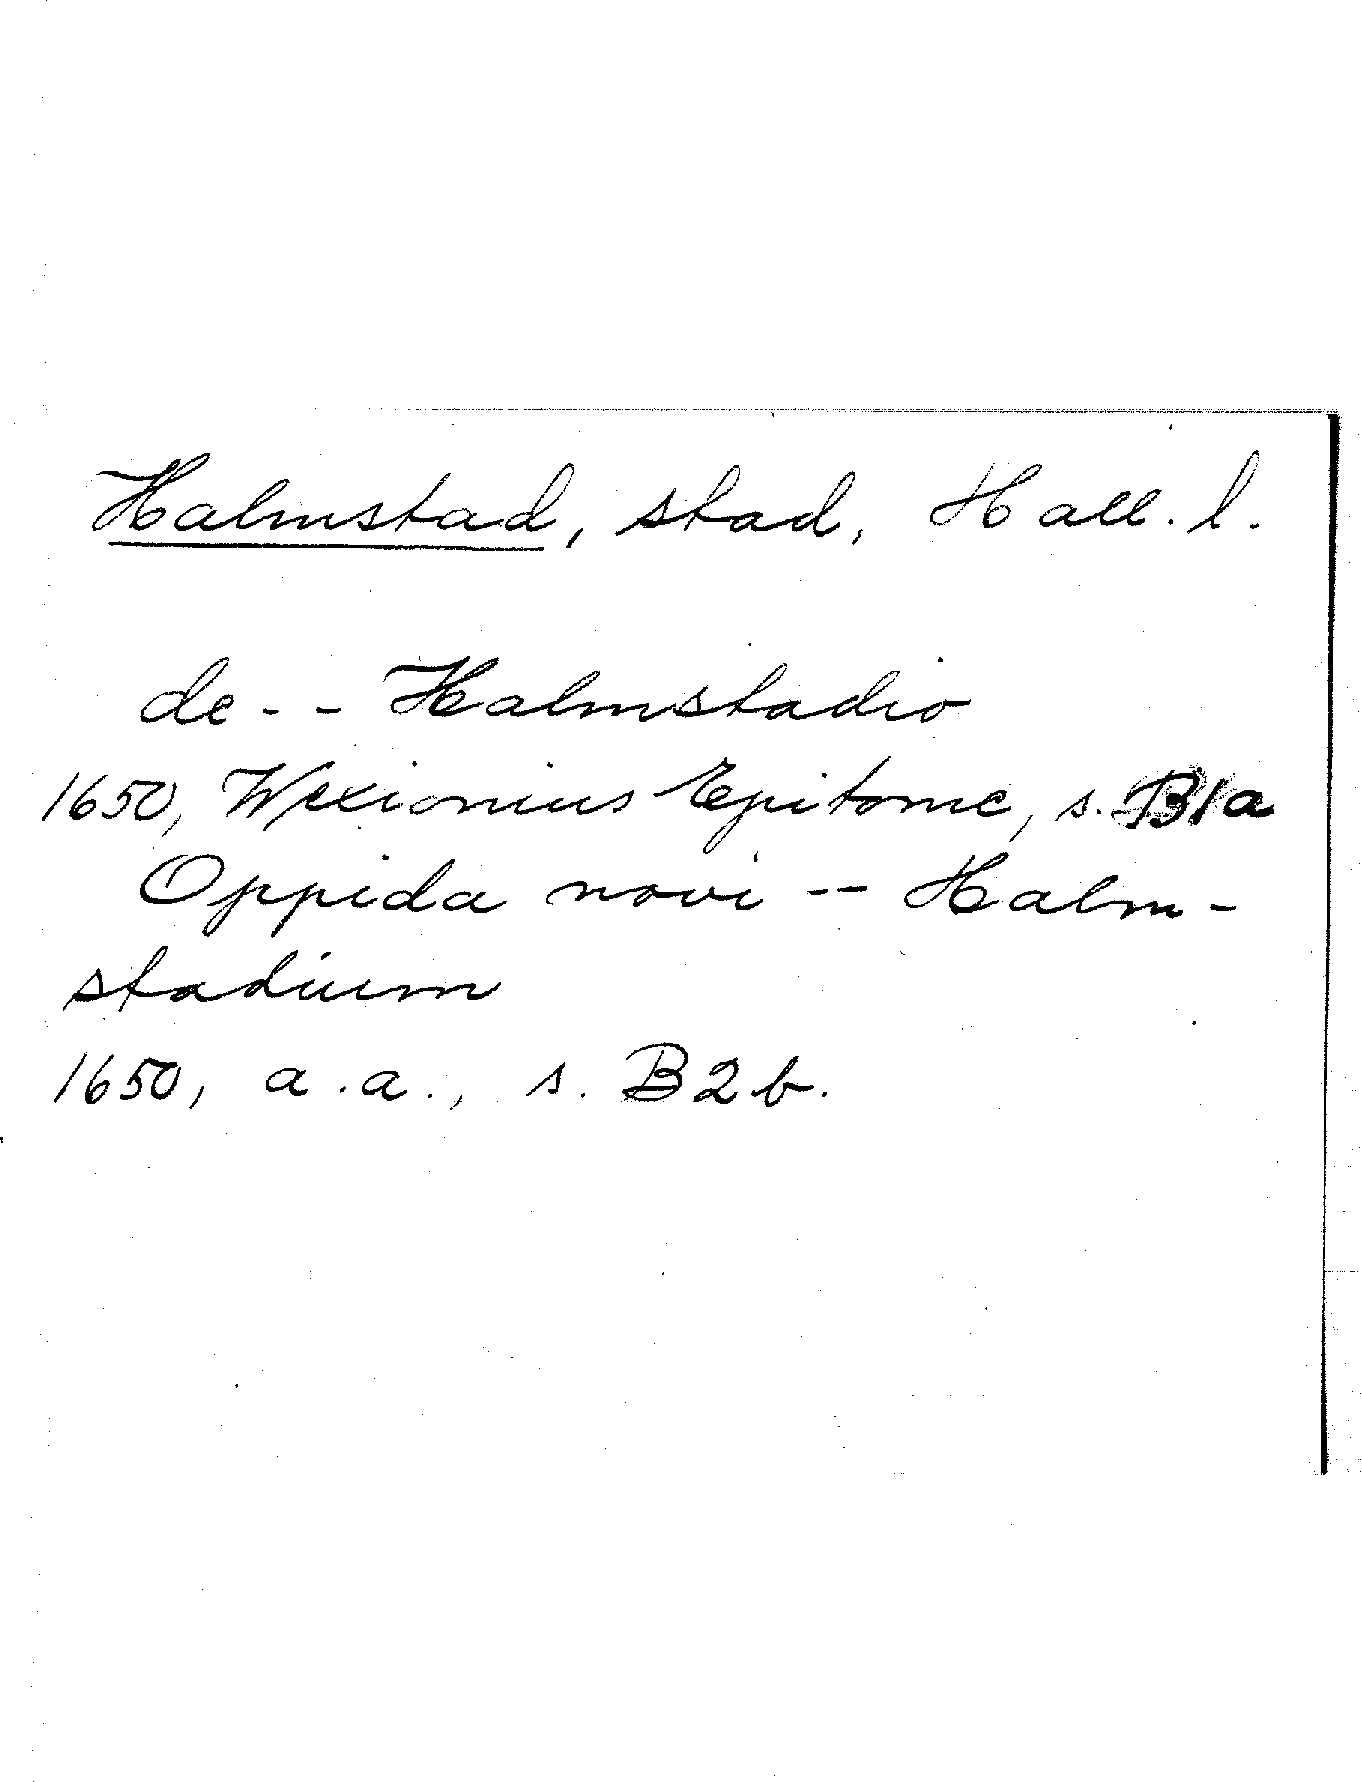 Halmstad, stad, Hall. l.
de - - Halmstadio
1650, Wexionius Epitome, s. B1a
Oppida novi -- Halm-
stadium
1650, a.a., s. B2b.